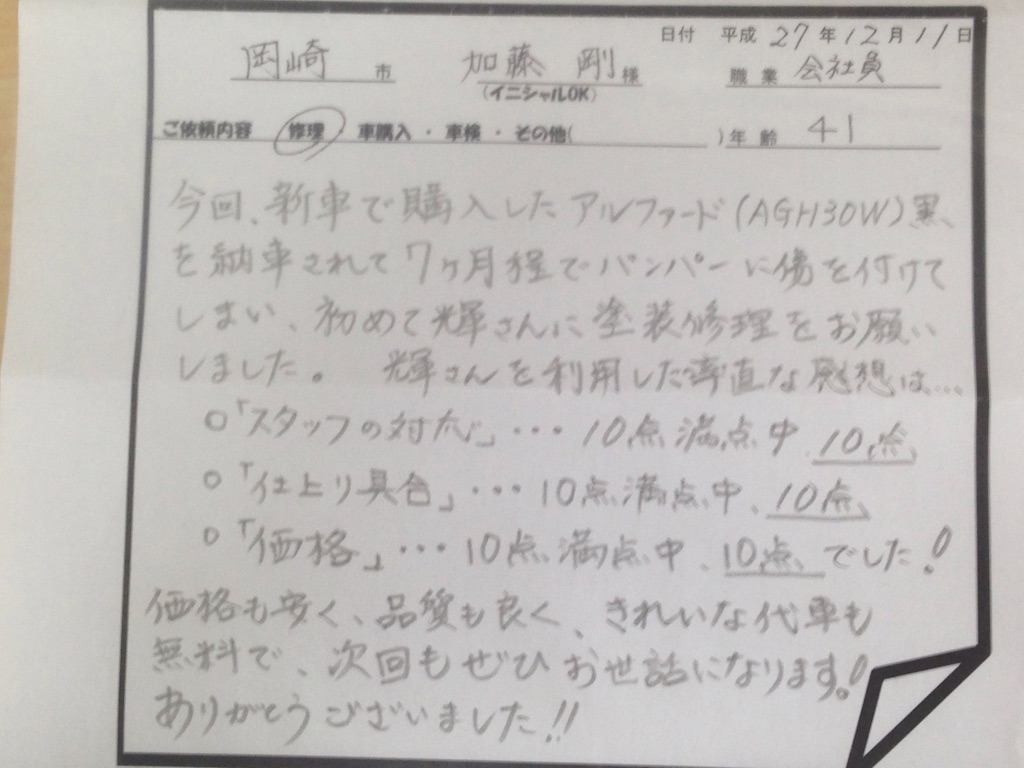 日付 平成 27 年 12 月 11 日
岡崎 市 加藤 剛 様 職業 会社員
(イニシャルOK)
ご依頼内容 修理・車購入・車検・その他( )年齢 41
今回、新車で購入したアルファード(AGH30W)黒、
を納車されて7ヶ月程でバンパーに傷を付けて
しまい、初めて輝さんに塗装修理をお願い
しました。 輝さんを利用した率直な感想は…
○「スタッフの対応」・・・10点満点中、10点、
○「仕上り具合」・・・10点満点中、10点、
○「価格」・・・10点満点中、10点、でした!
価格も安く、品質も良く、きれいな代車も
無料で、次回もぜひお世話になります!
ありがとうございました!!